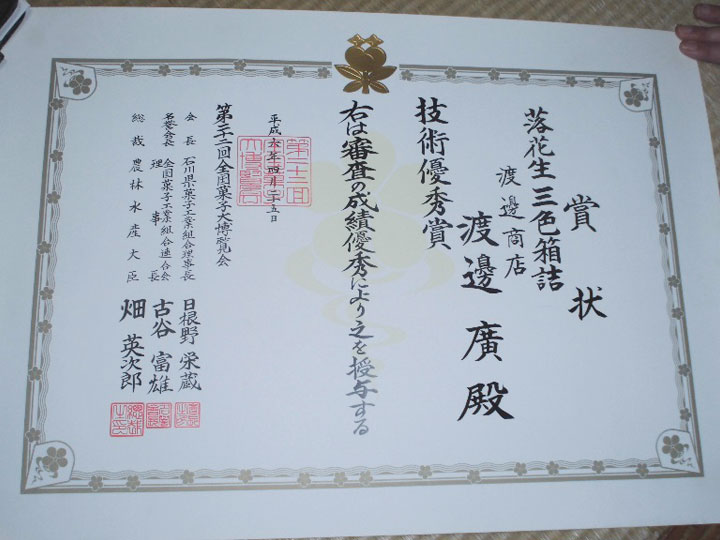 賞状
落花生三色箱詰
渡邊商店
渡邊廣殿
技術優秀賞
右は審査の成績優秀により之を授与する
平成六年四月二十五日
第二十二回全国菓子大博覧会
会長 石川県菓子工業組合理事長 日根野栄蔵
名誉会長 全国菓子工業組合連合会理事長 古谷富雄
総裁 農林水産大臣 畑英次郎